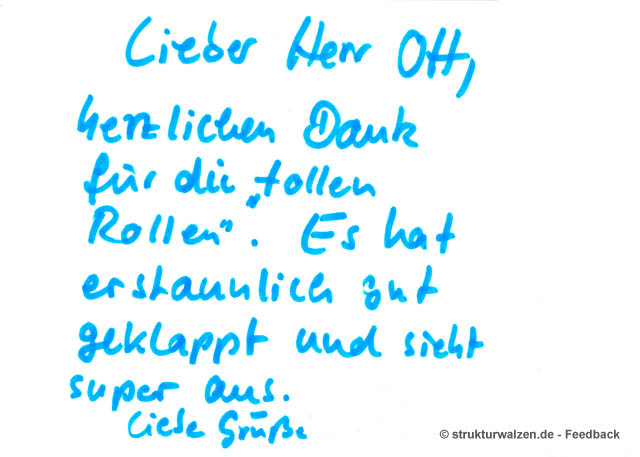 Lieber Herr Ott,
herzlichen Dank
für die „tollen
Rollen“. Es hat
erstaunlich gut
geklappt und sieht
super aus.
Liebe Grüße
© strukturwalzen.de - Feedback